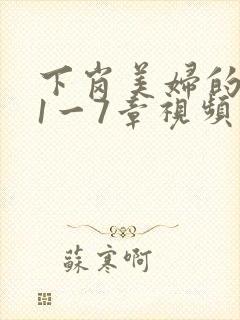 下岗美婦的
1一7章視頻
蘇寒啊